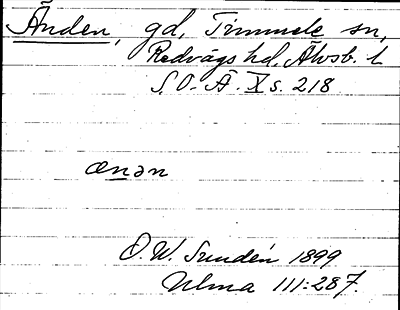 Änden, gd, Timmele sn,
Redvägs hd, Älvsb. l
S. O. Ä. X s. 218
ænən
O. W. Sundén 1899
Ulma 111:287.